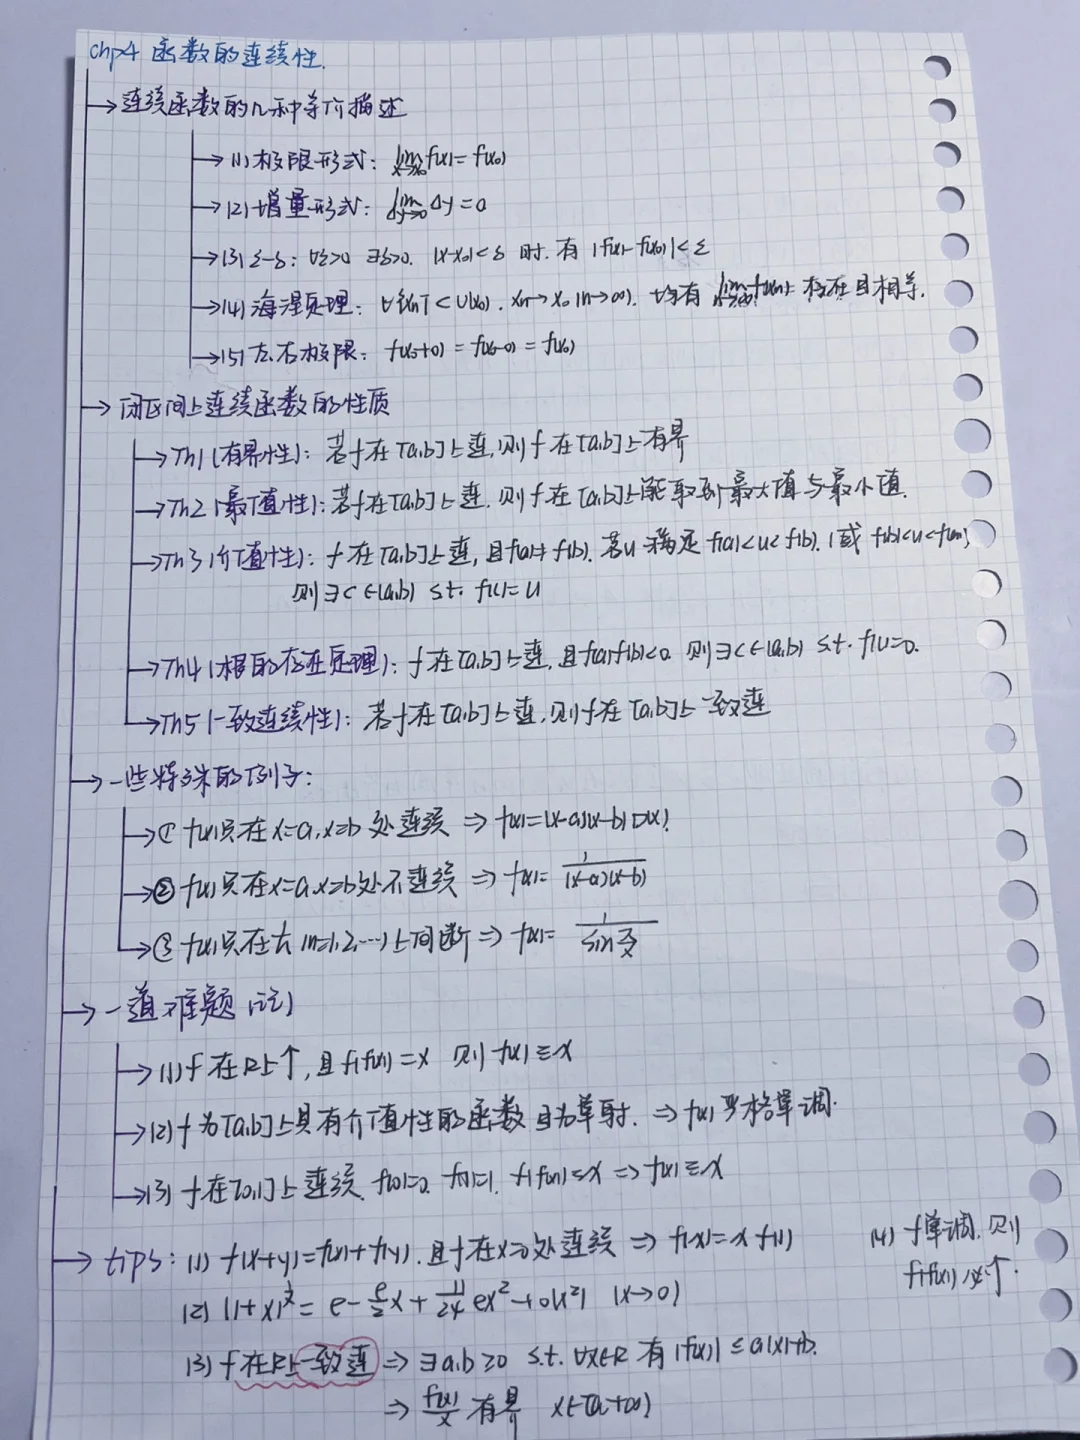 chp4 函数的连续性.
→连续函数的几种等价描述
→(1)极限形式: lim x→x₀ f(x)=f(x₀)
→(2)增量形式: lim Δy=0
→(3)ε-δ: ∀ε>0 ∃δ>0. |x-x₀|<δ 时.有 |f(x)-f(x₀)|<ε
→(4)海涅定理: ∀{xn}⊂U(x₀). xn→x₀(n→∞). 均有 lim f(xn) 存在且相等.
→(5)左右极限: f(x₀+0)=f(x₀-0)=f(x₀)
→闭区间上连续函数的性质
→Th1(有界性): 若f在[a,b]上连,则f在[a,b]上有界
→Th2(最值性):若f在[a,b]上连.则f在[a,b]上能取到最大值与最小值.
→Th3(介值性): f在[a,b]上连,且f(a)≠f(b).若u满足f(a)<u<f(b).(或f(b)<u<f(a))
则∃c∈(a,b) s.t. f(c)=u
→Th4(根的存在定理): f在[a,b]上连,且f(a)·f(b)<0. 则∃c∈(a,b) s.t. f(c)=0.
→Th5(一致连续性): 若f在[a,b]上连.则f在[a,b]上一致连
→一些特殊的例子:
→① f(x)只在x=a,x=b处连续 ⇒ f(x)=(x-a)(x-b)D(x)
→② f(x)只在x=a,x=b处不连续 ⇒ f(x)=1/((x-a)(x-b))
→③ f(x)只在1/n(n=1,2,…)上间断 ⇒ f(x)=1/(sin π/x)
→一道难题(记)
→(1)f在R上↑,且f(f(x))=x 则f(x)≡x
→(2)f为[a,b]上具有介值性的函数且为单射. ⇒f(x)严格单调.
→(3) f在[0,1]上连续. f(0)=0. f(1)=1. f(f(x))≡x ⇒ f(x)≡x
→ tips: (1) f(x+y)=f(x)+f(y).且f在x=0处连续 ⇒ f(x)=x f(1)
(4) f单调.则
f(f(x))必↑.
(2) (1+x)^(1/x) = e-(e/2)x+(11/24)ex²+o(x²) (x→0)
(3) f在R上一致连 ⇒ ∃a,b≥0 s.t. ∀x∈R 有|f(x)|≤a|x|+b.
⇒ f(x)/x 有界 x∈[a,+∞)